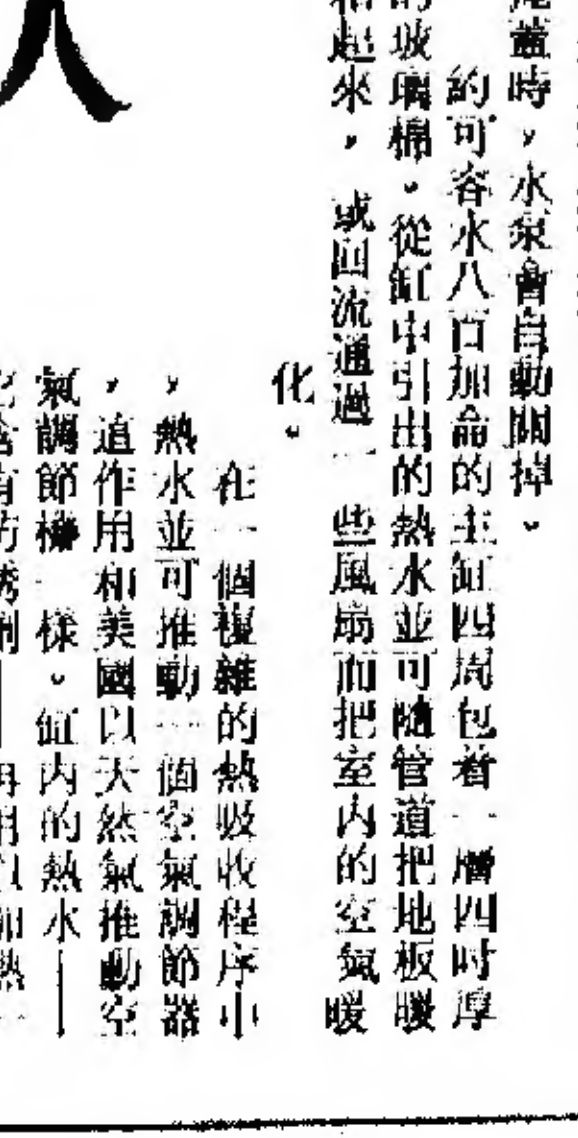 蓋時，水泵會自動關掉。
約可容水八百加侖的主缸四周包着一層四吋厚
的玻璃棉。從缸中引出的熱水並可隨管道把地板暖
起來，或回流通過一些風扇而把室內的空氣暖
化。
在一個複雜的熱吸收程序中
，熱水並可推動一個空氣調節器
，這作用和美國以天然氣推動空
氣調節機一樣。缸內的熱水—
人